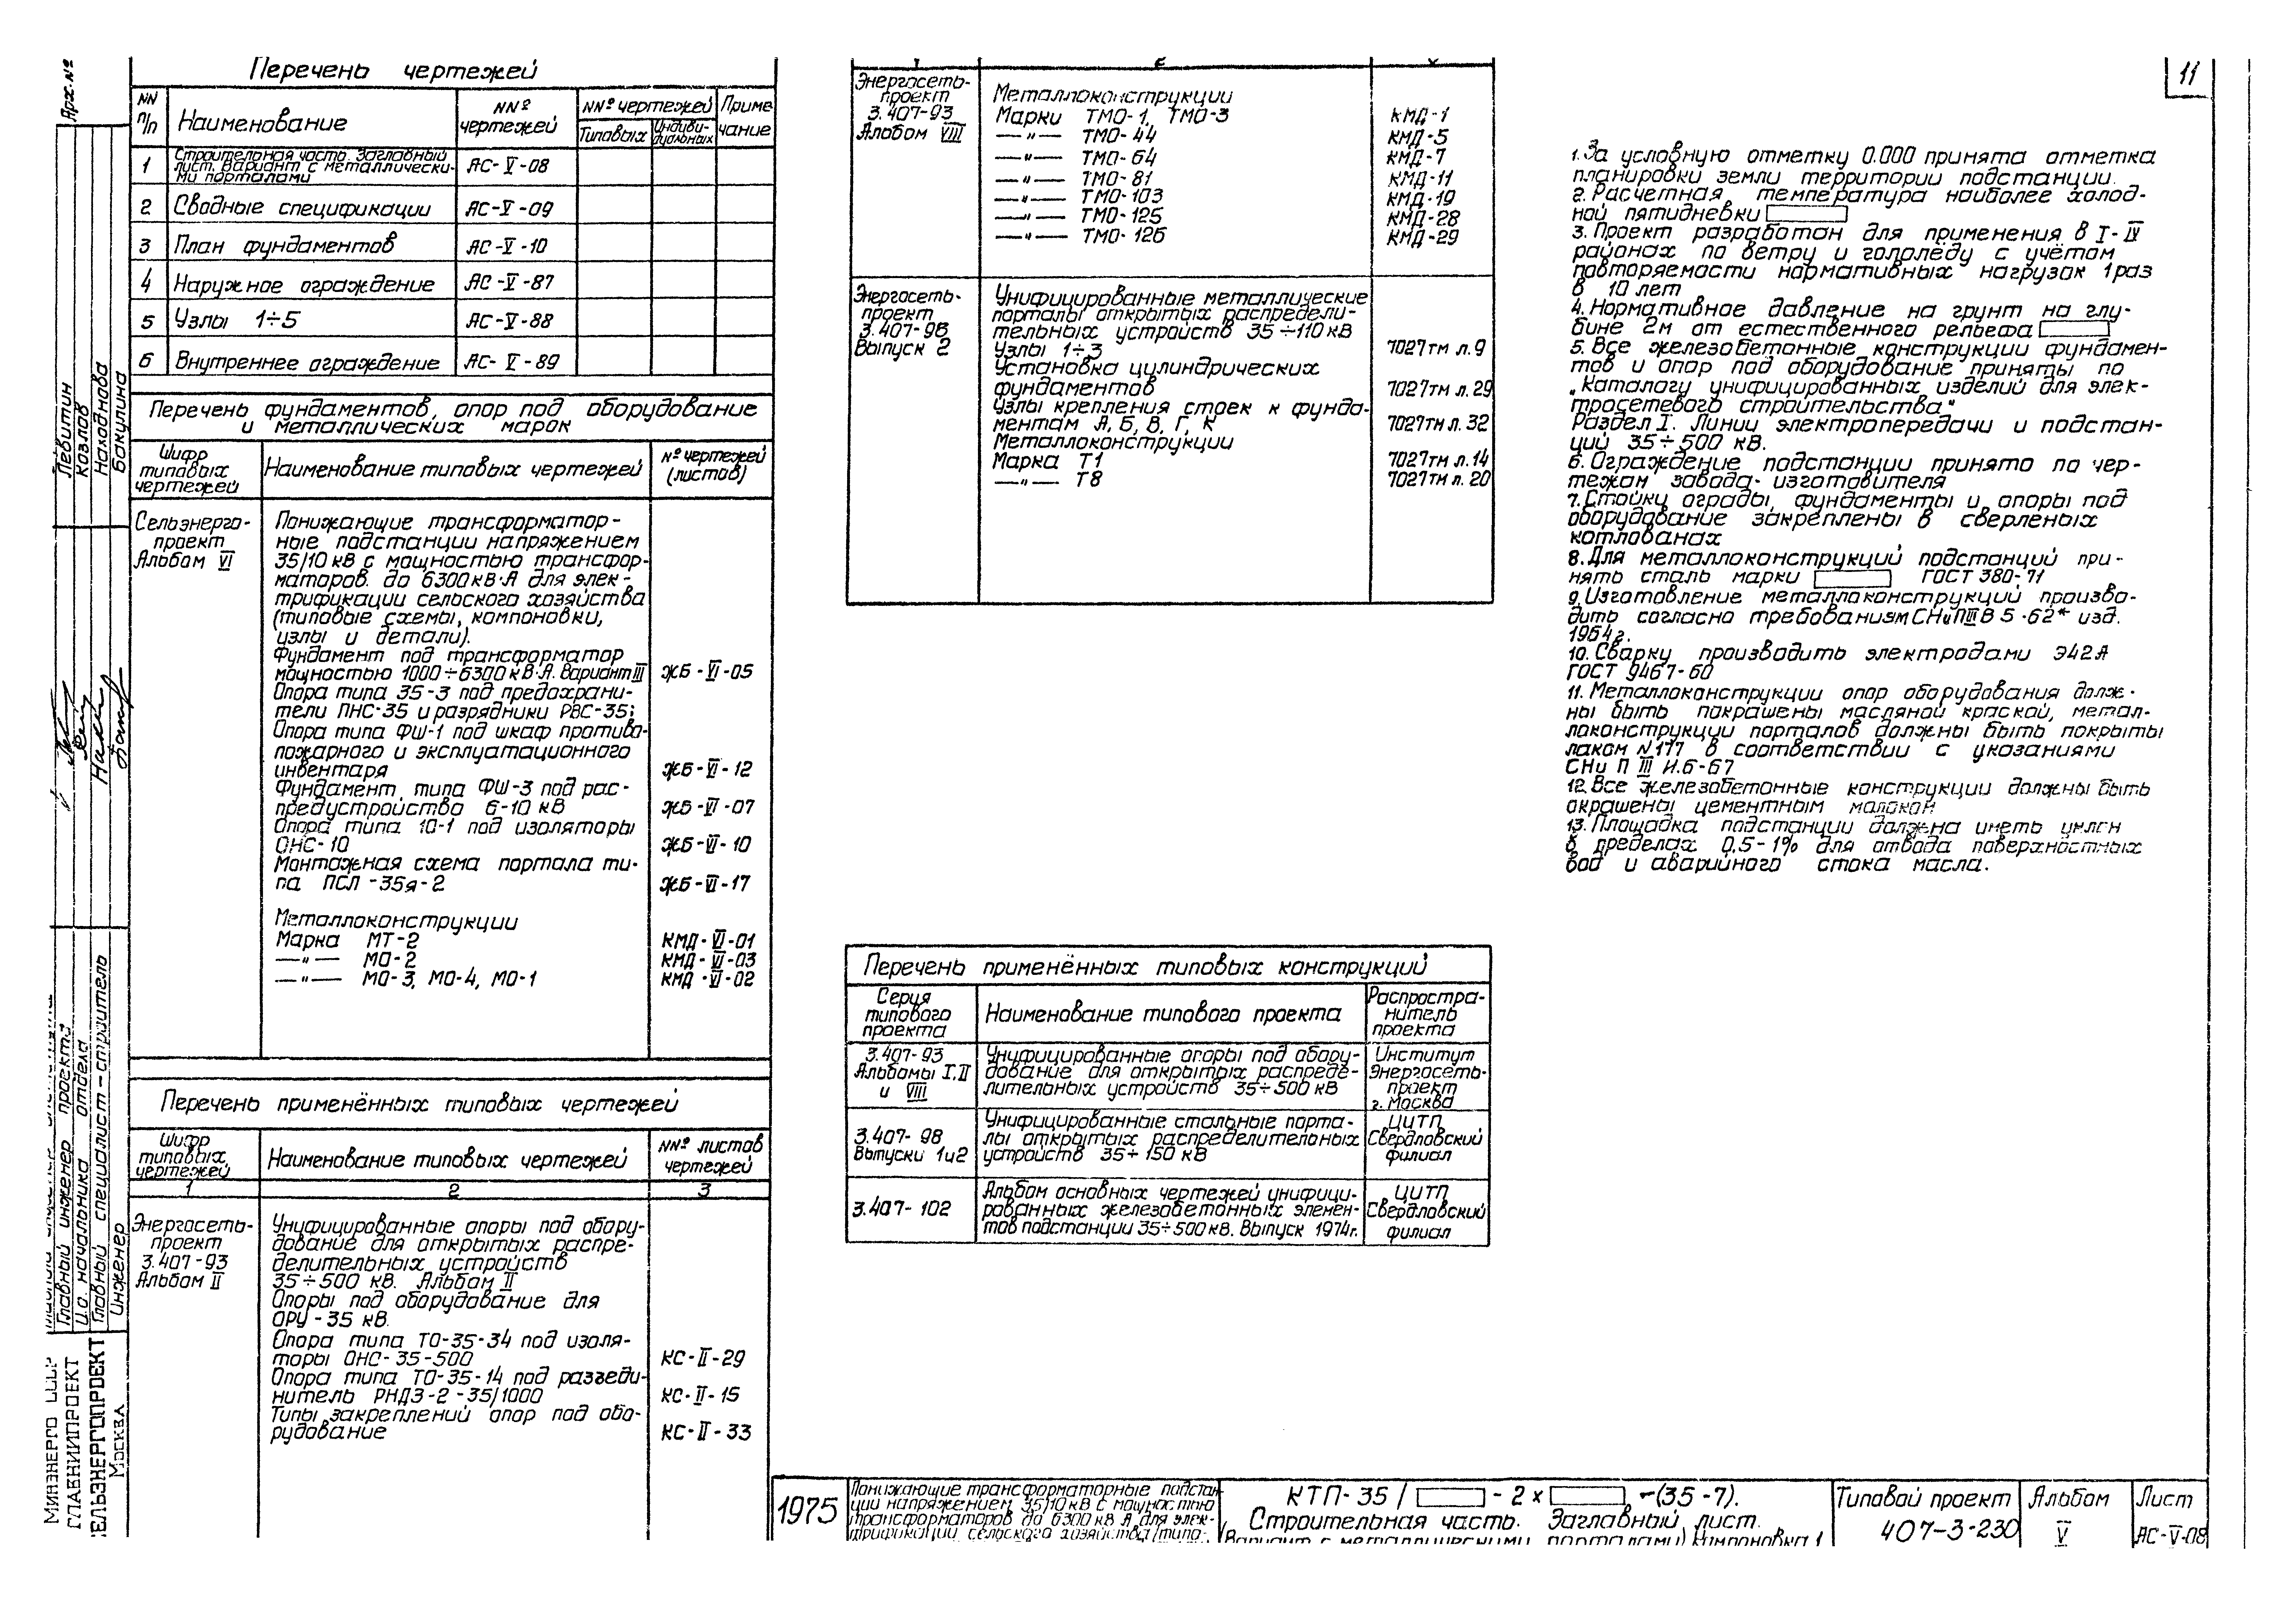 Перечень чертежей
NN п/п
Наименование
NNº чертежей
NNº чертежей
Типовых
Индиви-
дуальных
Приме
чание
1
Строительная часть. Заглавный
лист. Вариант с металлически-
ми порталами
АС-V-08
2 Сводные спецификации АС-V-09
3 План фундаментов АС-V-10
4 Наружное ограждение АС-V-87
5 Узлы 1÷5 АС-V-88
6 Внутреннее ограждение АС-V-89
Перечень фундаментов, опор под оборудование
и металлических марок
Шифр
типовых
чертежей
Наименование типовых чертежей
Nº чертежей
(листов)
Сельэнерго-
проект
Альбом VI
Понижающие трансформатор-
ные подстанции напряжением
35/10 кВ с мощностью трансфор-
маторов. до 6300 кВ·А для элек-
трификации сельского хозяйства
(типовые схемы, компоновки,
узлы и детали).
Фундамент под трансформатор
мощностью 1000÷6300 кВ·А. Вариант III ЖБ-VI-05
Опора типа 35-3 под предохрани-
тели ПНС-35 и разрядники РВС-35;
Опора типа ФШ-1 под шкаф противо-
пожарного и эксплуатационного
инвентаря ЖБ-VI-12
Фундамент типа ФШ-3 под рас-
предустройство 6-10 кВ ЖБ-VI-07
Опора типа 10-1 под изоляторы
ОНС-10 ЖБ-VI-10
Монтажная схема портала ти-
па ПСЛ-35я-2 ЖБ-VI-17
Металлоконструкции
Марка МТ-2 КМД-VI-01
—"— МО-2 КМД-VI-03
—"— МО-3, МО-4, МО-1 КМД-VI-02
Перечень применённых типовых чертежей
Шифр
типовых
чертежей
Наименование типовых чертежей
NNº листов
чертежей
1 2 3
Энергосеть-
проект
3.407-93
Альбом II
Унифицированные опоры под обору-
дование для открытых распре-
делительных устройств
35÷500 кВ. Альбом II
Опоры под оборудование для
ОРУ-35 кВ.
Опора типа ТО-35-34 под изоля-
торы ОНС-35-500 КС-II-29
Опора типа ТО-35-14 под разъеди-
нитель РНДЗ-2-35/1000 КС-II-15
Типы закреплений опор под обо-
рудование КС-II-33
Энергосеть-
проект
3.407-93
Альбом VIII
Металлоконструкции
Марки ТМО-1, ТМО-3 КМД-1
—"— ТМО-44 КМД-5
—"— ТМО-64 КМД-7
—"— ТМО-81 КМД-11
—"— ТМО-103 КМД-19
—"— ТМО-125 КМД-28
—"— ТМО-126 КМД-29
Энергосеть-
проект
3.407-98
Выпуск 2
Унифицированные металлические
порталы открытых распредели-
тельных устройств 35÷110 кВ
Узлы 1÷3 7027тм л.9
Установка цилиндрических
фундаментов 7027тм л.29
Узлы крепления стоек к фунда-
ментам А, Б, В, Г, К 7027тм л.32
Металлоконструкции
Марка Т1 7027тм л.14
—"— Т8 7027тм л.20
Перечень применённых типовых конструкций
Серия
типового
проекта
Наименование типового проекта
Распростра-
нитель
проекта
3.407-93
Альбомы I, II
и VIII
Унифицированные опоры под обору-
дование для открытых распреде-
лительных устройств 35÷500 кВ
Институт
Энергосеть-
проект
г. Москва
3.407-98
Выпуски 1и2
Унифицированные стальные порта-
лы открытых распределительных
устройств 35÷150 кВ
ЦИТП
Свердловский
филиал
3.407-102
Альбом основных чертежей унифици-
рованных железобетонных элемен-
тов подстанции 35÷500 кВ. Выпуск 1974г.
ЦИТП
Свердловский
филиал
11
1. За условную отметку 0.000 принята отметка
планировки земли территории подстанции.
2. Расчетная температура наиболее холод-
ной пятидневки
3. Проект разработан для применения в I-IV
районах по ветру и гололёду с учётом
повторяемости нормативных нагрузок 1 раз
в 10 лет
4. Нормативное давление на грунт на глу-
бине 2м от естественного рельефа
5. Все железобетонные конструкции фундамен-
тов и опор под оборудование приняты по
„Каталогу унифицированных изделий для элек-
тросетевого строительства"
Раздел I. Линии электропередачи и подстан-
ций 35÷500 кВ.
6. Ограждение подстанции принято по чер-
тежам завода-изготовителя
7. Стойки ограды, фундаменты и опоры под
оборудование закреплены в сверленых
котлованах
8. Для металлоконструкций подстанций при-
нять сталь марки ГОСТ 380-71
9. Изготовление металлоконструкций произво-
дить согласно требованиям СНиП III В 5-62* изд.
1964г.
10. Сварку производить электродами Э42А
ГОСТ 9467-60
11. Металлоконструкции опор оборудования долж-
ны быть покрашены масляной краской, метал-
локонструкции порталов должны быть покрыты
лаком N177 в соответствии с указаниями
СНи П III И.6-67
12. Все железобетонные конструкции должны быть
окрашены цементным молоком
13. Площадка подстанции должна иметь уклон
в пределах 0,5-1% для отвода поверхностных
вод и аварийного стока масла.
Арх. Nº
Левитин
Козлов
Находнова
Бакулина
Главный инженер проекта
И.о. начальника отдела
Главный специалист-строитель
Инженер
Минэнерго СССР
ГЛАВНИИПРОЕКТ
СЕЛЬЭНЕРГОПРОЕКТ
Москва
1975
Понижающие трансформаторные подстан
ции напряжением 35/10 кВ с мощностью
трансформаторов до 6300 кВ А для элек-
трификации сельского хозяйства (типо-
КТП-35/ - 2 x -(35-7).
Строительная часть. Заглавный лист.
(Вариант с металлическими порталами) Компоновка 1
Типовой проект
407-3-230
Альбом
V
Лист
АС-V-08